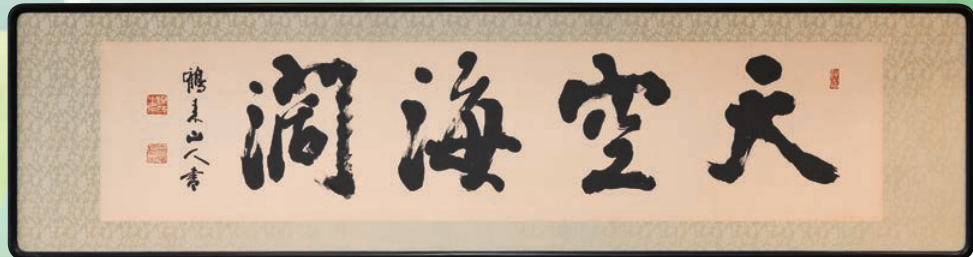 天空海濶
鶴来山人書